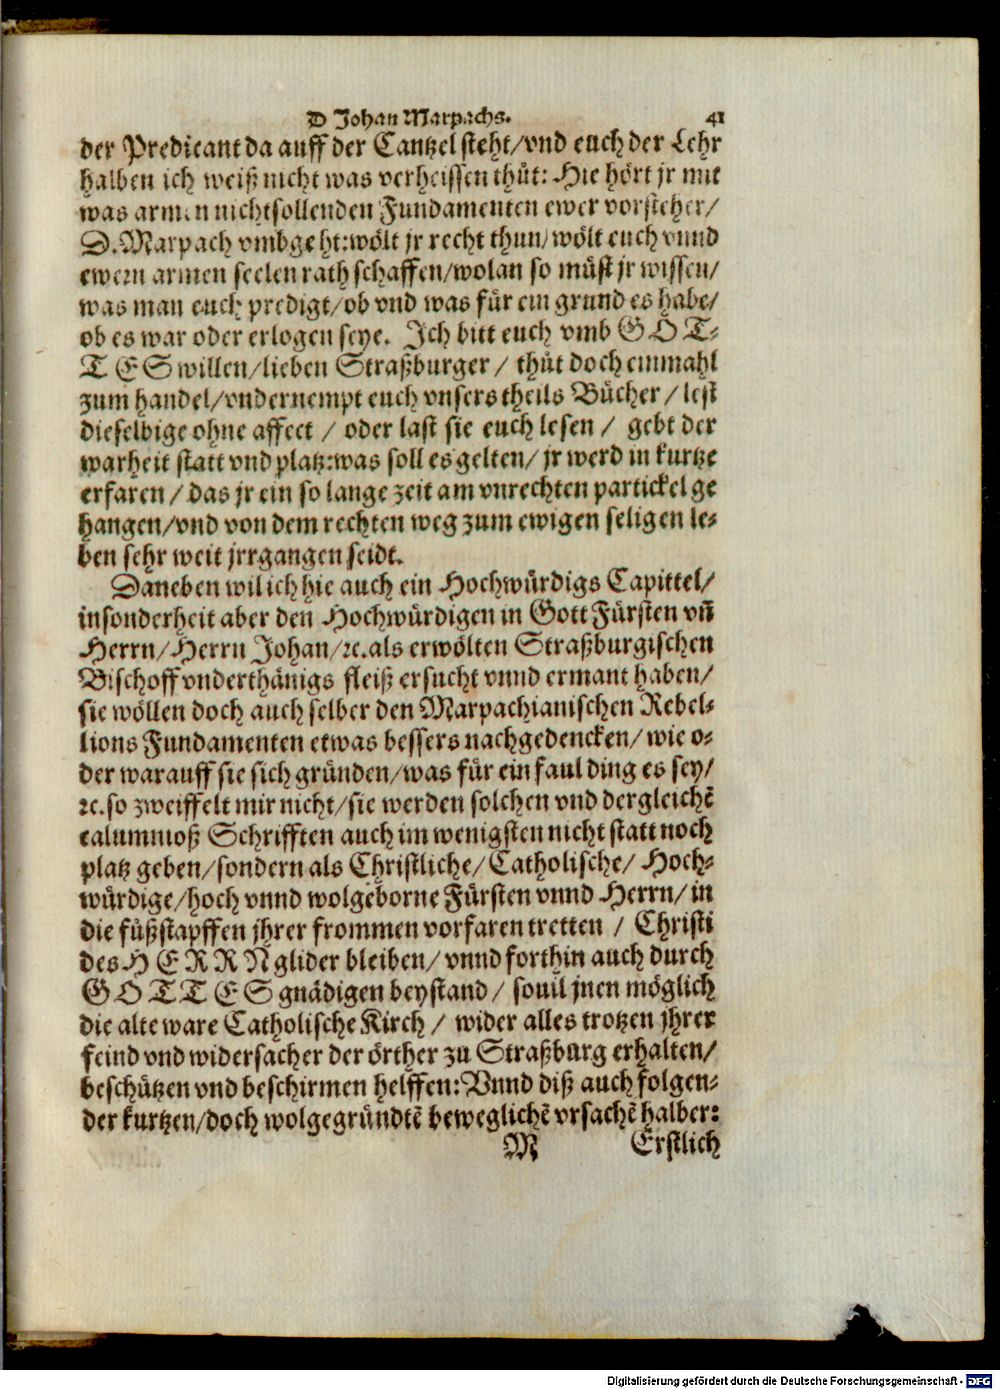 D Johan Marpachs. 41
der Predicant da auff der Cantzel steht/vnd euch der Lehr
halben ich weiß nicht was verheissen thůt: Hie hört jr mit
was armen nichtsollenden Fundamenten ewer vorsteher/
D. Marpach vmbgeht: wölt jr recht thun/wölt euch vnnd
ewern armen seelen rath schaffen/wolan so müst jr wissen/
was man euch predigt/ob vnd was für ein grund es habe/
ob es war oder erlogen seye. Ich bitt euch vmb GOT-
TES willen/lieben Straßburger / thůt doch einmahl
zum handel/vndernempt euch vnsers theils Bücher / lest
dieselbige ohne affect / oder last sie euch lesen / gebt der
warheit statt vnd platz: was soll es gelten/ jr werd in kurtze
erfaren / das jr ein so lange zeit am vnrechten partickel ge
hangen/vnd von dem rechten weg zum ewigen seligen le-
ben sehr weit jrrgangen seidt.
Daneben wil ich hie auch ein Hochwürdigs Capittel/
insonderheit aber den Hochwürdigen in Gott Fürsten vñ
Herrn/Herrn Johan/ꝛc. als erwölten Straßburgischen
Bischoff vnderthänigs fleiß ersucht vnnd ermant haben/
sie wöllen doch auch selber den Marpachianischen Rebel-
lions Fundamenten etwas bessers nachgedencken/ wie o-
der warauff sie sich gründen/was für ein faul ding es sey/
ꝛc. so zweiffelt mir nicht/sie werden solchen vnd dergleichẽ
calumnioß Schrifften auch im wenigsten nicht statt noch
platz geben/sondern als Christliche/ Catholische/ Hoch-
würdige/hoch vnnd wolgeborne Fürsten vnnd Herrn/ in
die fůßstapffen jhrer frommen vorfaren tretten / Christi
des HERRN glider bleiben/ vnnd forthin auch durch
GOTTES gnädigen beystand / souil jnen möglich
die alte ware Catholische Kirch / wider alles trotzen jhrer
feind vnd widersacher der örther zu Straßburg erhalten/
beschützen vnd beschirmen helffen: Vnnd diß auch folgen-
der kurtzen/doch wolgegründtẽ beweglichẽ vrsachẽ halber:
M Erstlich
Digitalisierung gefördert durch die Deutsche Forschungsgemeinschaft - DFG